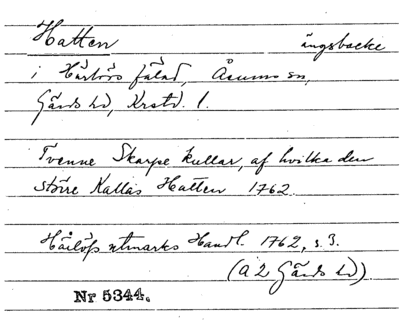 Hatten ängsbacke
i Härlövs fälad, Åsums sn,
Gärds hd, Krstd. l.
Tvenne Skarpe kullar, af hvilka den
större Kallas Hatten 1762.
Härlöfs utmarks Handl. 1762, s. 3.
(A 2 Gärds hd)
Nr 5344.